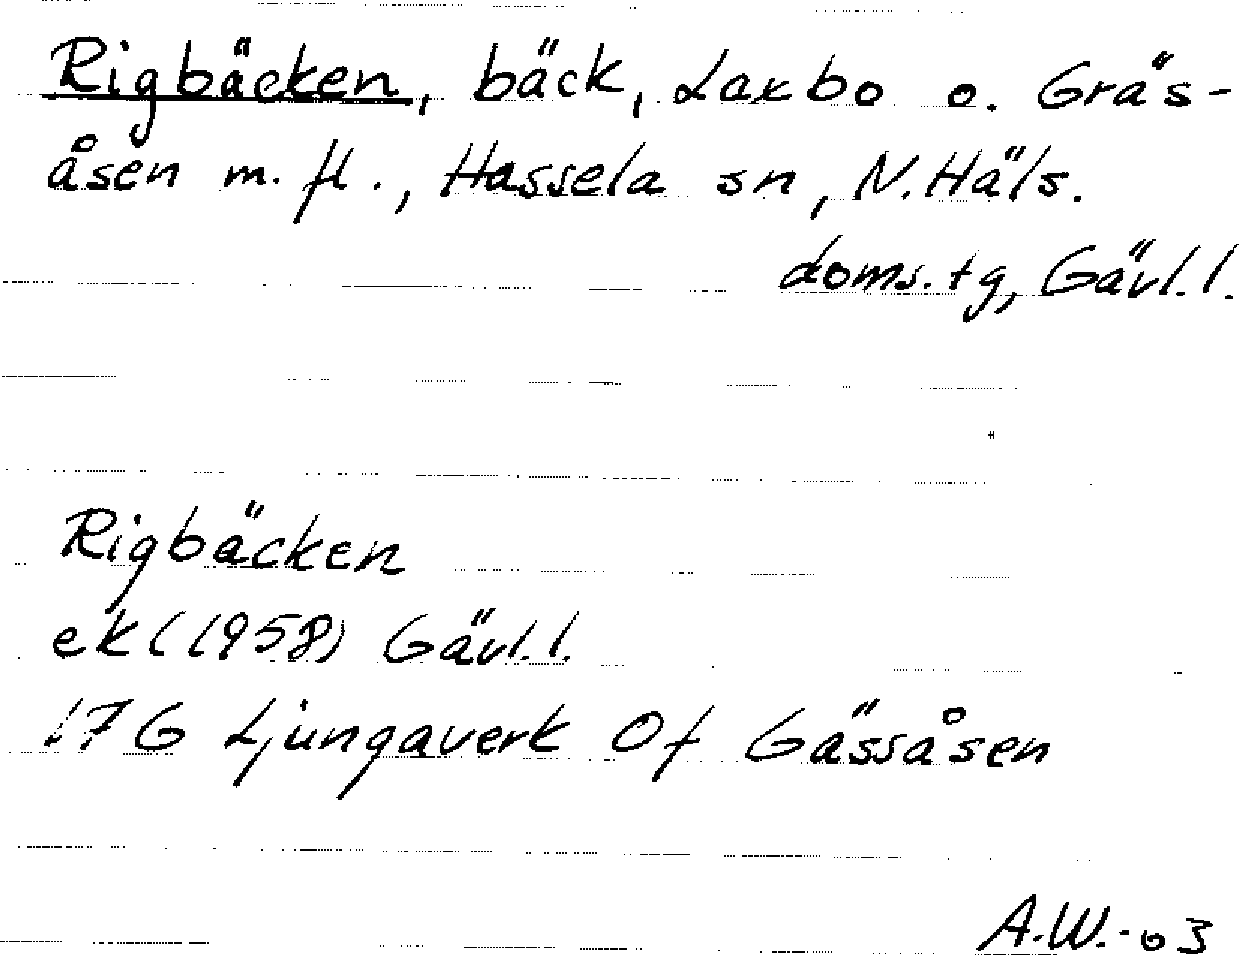 Rigbäcken, bäck, Laxbo o. Gräs-
åsen m. fl., Hassela sn, N. Häls.
doms. tg, Gävl. l.
Rigbäcken
ek (1958) Gävl. l.
17G Ljungaverk 0f Gässåsen
A.W.-03